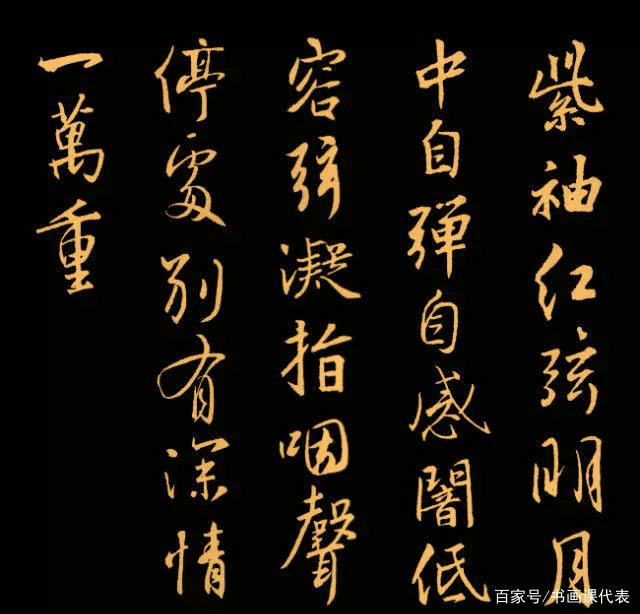 紫袖红弦明月
中自弹自感闇低
容弦凝指咽聲
停處别有深情
一萬重
百家号/书画课代表